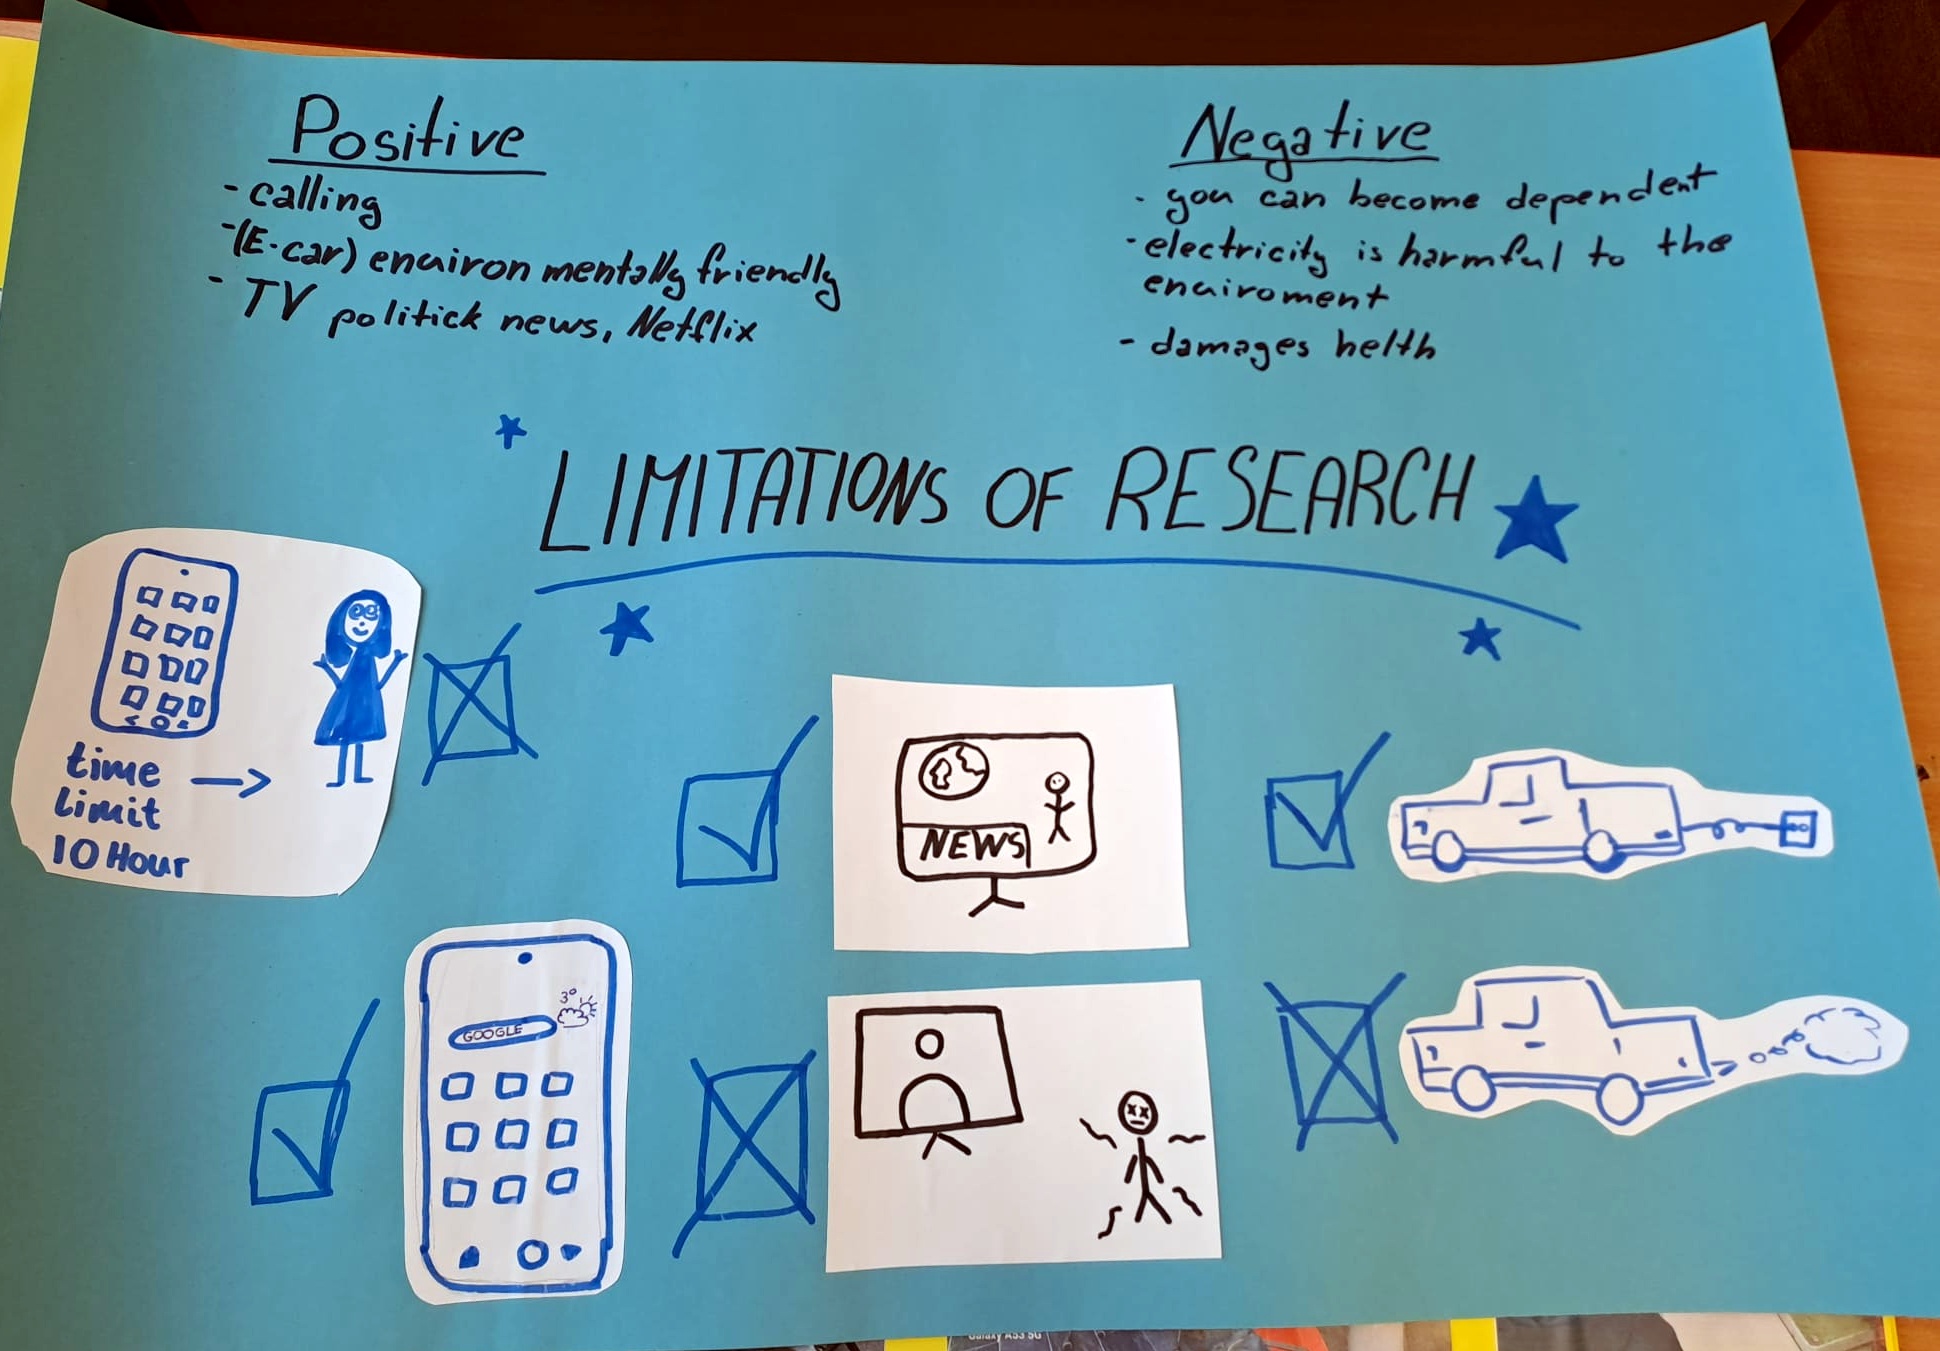 Positive
- calling
- (E-car) enairon mentally friendly
- TV politick news, Netflix
Negative
- you can become dependent
- electricity is harmful to the
enairoment
- damages helth
LIMITATIONS OF RESEARCH
time
Limit
10 Hour
NEWS
3°
GOOGLE
Galaxy A53 5G